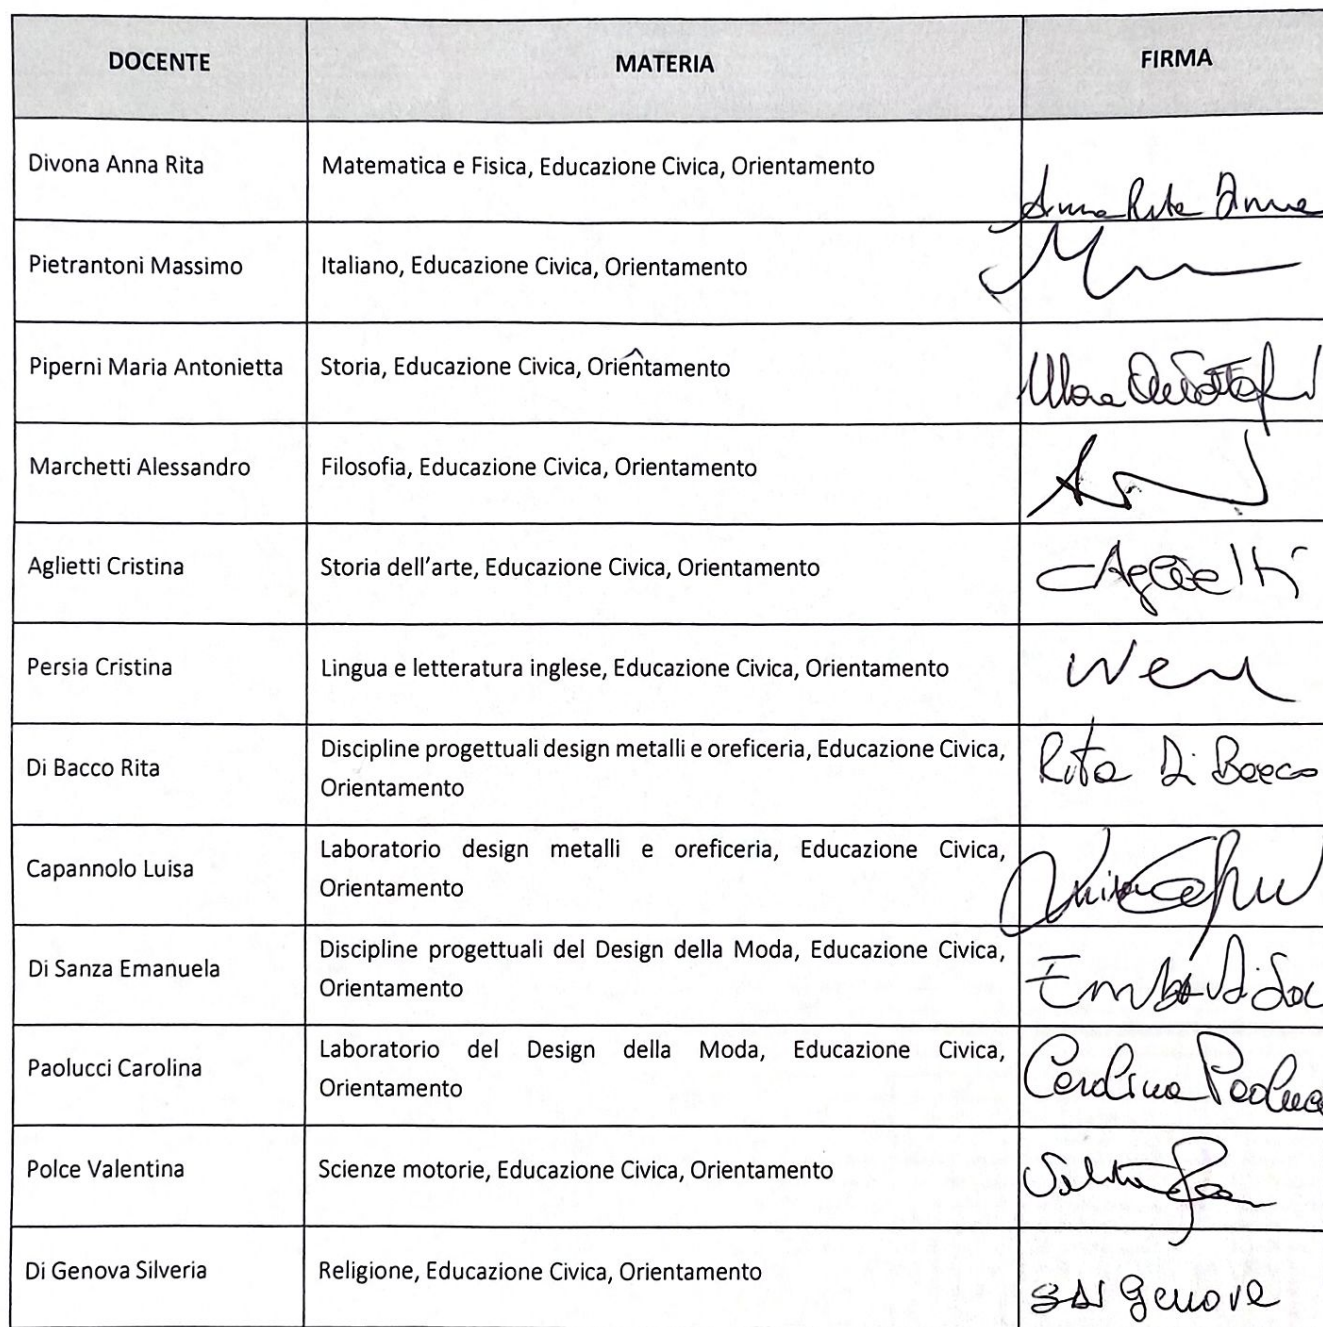 DOCENTE MATERIA FIRMA
Divona Anna Rita Matematica e Fisica, Educazione Civica, Orientamento
Anna Rita
Pietrantoni Massimo Italiano, Educazione Civica, Orientamento
Piperni Maria Antonietta Storia, Educazione Civica, Orientamento
Marchetti Alessandro Filosofia, Educazione Civica, Orientamento
Aglietti Cristina Storia dell'arte, Educazione Civica, Orientamento CAglietti
Persia Cristina Lingua e letteratura inglese, Educazione Civica, Orientamento
Di Bacco Rita Discipline progettuali design metalli e oreficeria, Educazione Civica, Rita Di Bacco
Orientamento
Capannolo Luisa Laboratorio design metalli e oreficeria, Educazione Civica,
Orientamento
Di Sanza Emanuela Discipline progettuali del Design della Moda, Educazione Civica,
Orientamento
Paolucci Carolina Laboratorio del Design della Moda, Educazione Civica, Carolina
Orientamento
Polce Valentina Scienze motorie, Educazione Civica, Orientamento
Di Genova Silveria Religione, Educazione Civica, Orientamento
Genova